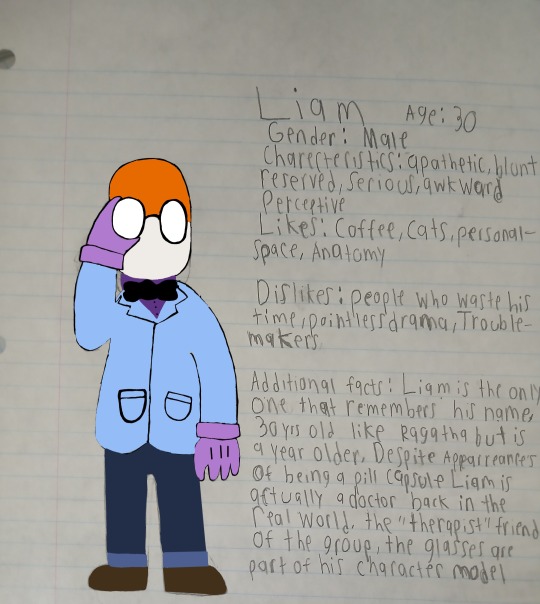 Liam Age: 30
Gender: Male
Charecteristics: apathetic, blunt
reserved, serious, awkward
Perceptive
Likes: Coffee, Cats, personal-
space, Anatomy
Dislikes: people who waste his
time, pointless drama, Trouble-
makers
Additional facts: Liam is the only
one that remembers his name,
30 yrs old like Ragatha but is
a year older, Despite Apparreances
of being a pill capsule Liam is
actually a doctor back in the
real world, the "therapist" friend
of the group, the glasses are
part of his character model